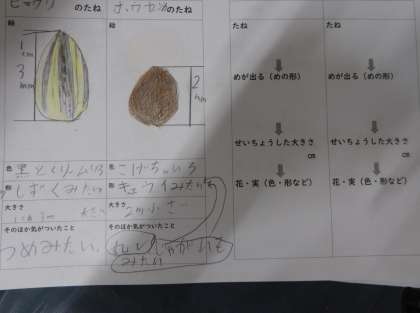 ヒマワリ のたね
ホウセンカのたね
絵
絵
1cm
3mm
2mm
色 黒とクリームいろ
色 こげちゃいろ
形 しずくみたい
形 キウイみたい
大きさ
大きさ 2mm
そのほか気がついたこと
そのほか気がついたこと
つめみたい。
じゃがいも
みたい
たね
めが出る(めの形)
せいちょうした大きさ
cm
花・実(色・形など)
たね
めが出る(めの形)
せいちょうした大きさ
cm
花・実(色・形など)